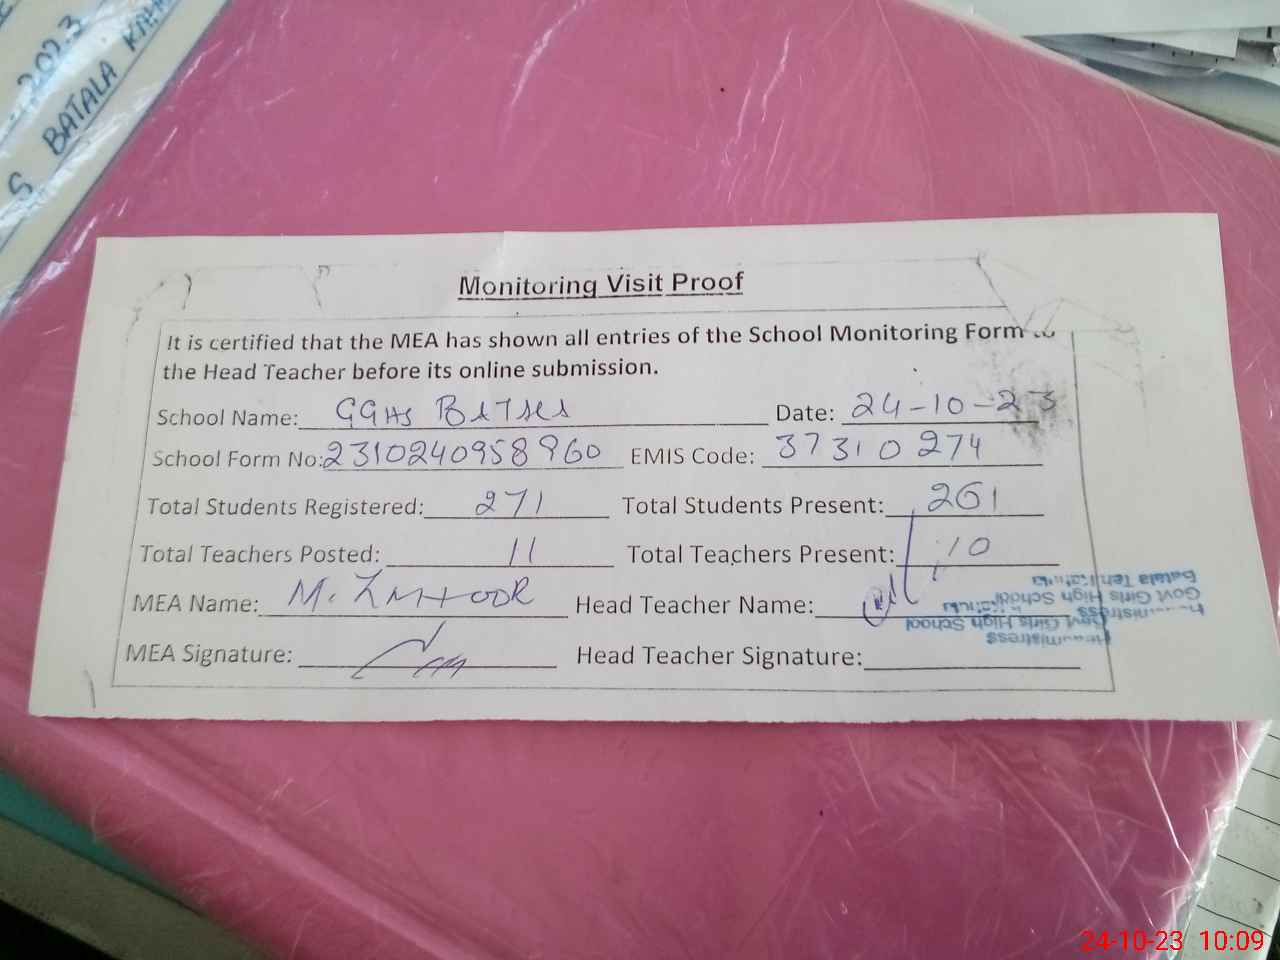 2023
S BATALA
Monitoring Visit Proof
It is certified that the MEA has shown all entries of the School Monitoring Form to
the Head Teacher before its online submission.
School Name: GGHS Date: 24-10-23
School Form No: 2310240958960 EMIS Code: 37310274
Total Students Registered: 271 Total Students Present: 261
Total Teachers Posted: 11 Total Teachers Present: 10
MEA Name: M. Head Teacher Name:
MEA Signature: Head Teacher Signature:
Govt Girls High School
Batala Teh
Govt Girls High School
24-10-23 10:09